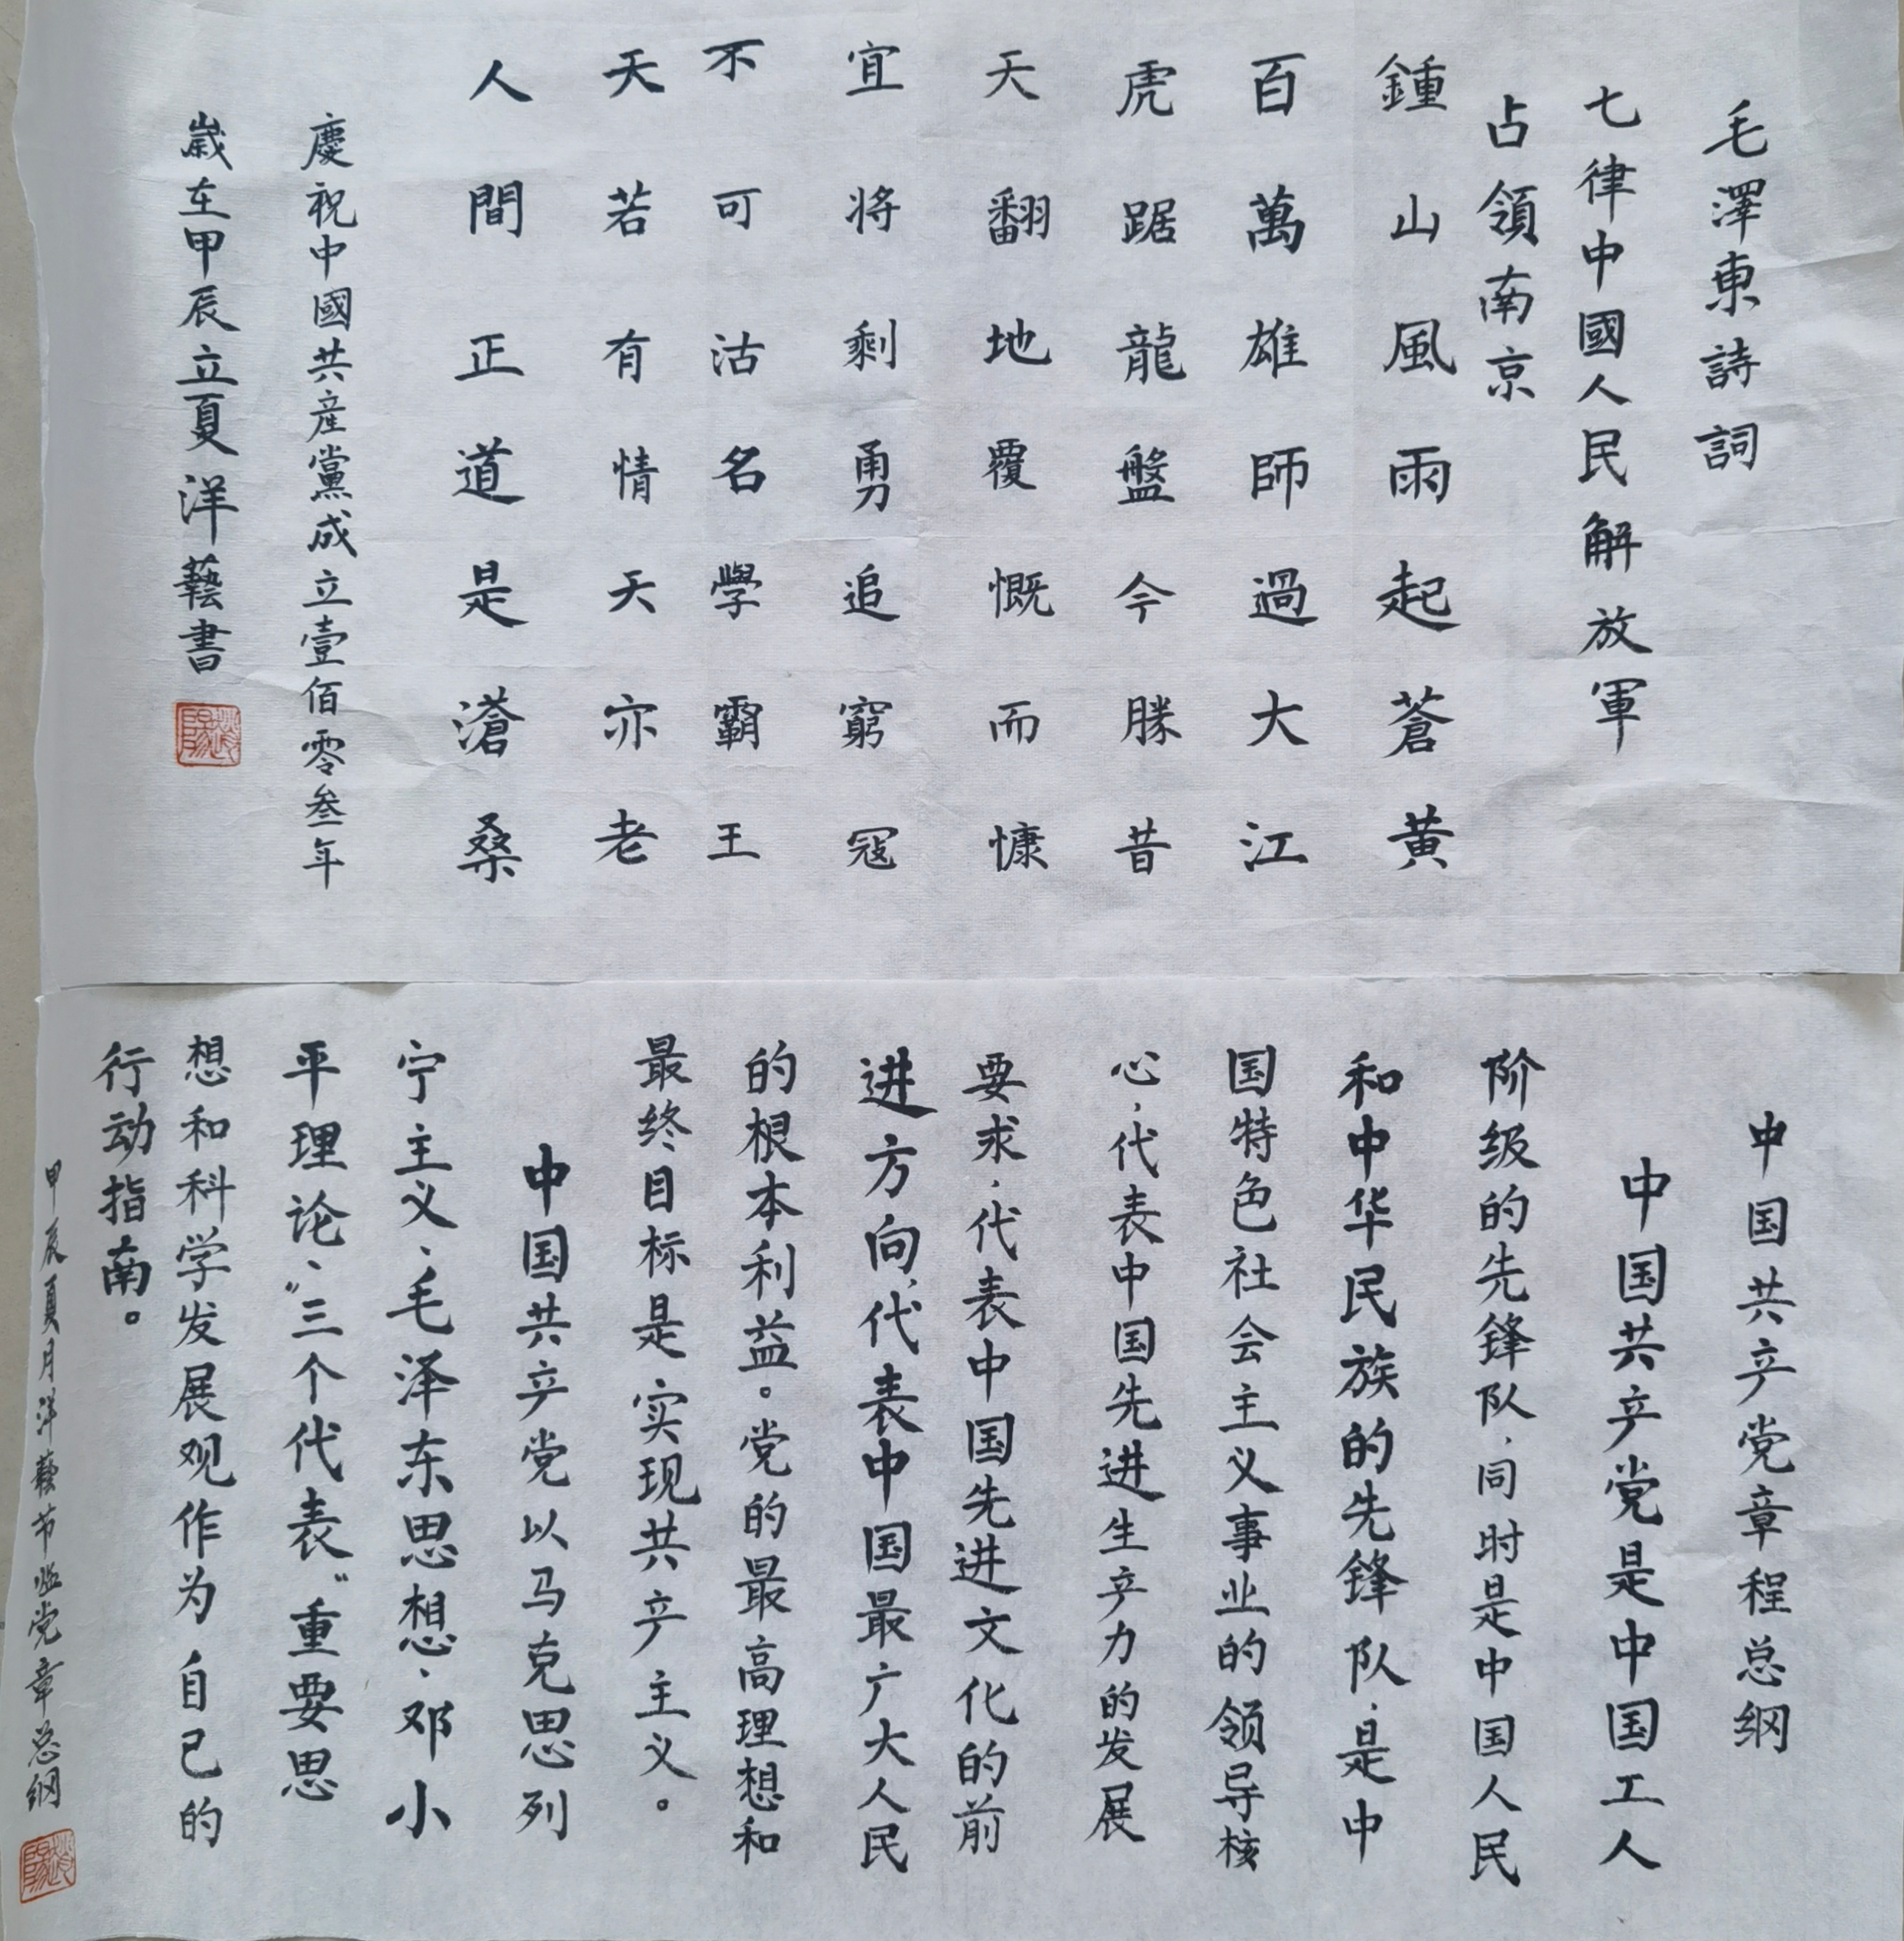 毛澤東詩詞
七律中國人民解放軍
占領南京
鍾山風雨起蒼黃
百萬雄師過大江
虎踞龍盤今勝昔
天翻地覆慨而慷
宜将剩勇追窮寇
不可沽名學霸王
天若有情天亦老
人間正道是滄桑
慶祝中國共産黨成立壹佰零叁年
歲在甲辰立夏洋藝書
中国共产党章程总纲
中国共产党是中国工人
阶级的先锋队,同时是中国人民
和中华民族的先锋队,是中
国特色社会主义事业的领导核
心,代表中国先进生产力的发展
要求,代表中国先进文化的前
进方向,代表中国最广大人民
的根本利益。党的最高理想和
最终目标是实现共产主义。
中国共产党以马克思列
宁主义、毛泽东思想、邓小
平理论、“三个代表”重要思
想和科学发展观作为自己的
行动指南。
甲辰夏月洋藝节临党章总纲